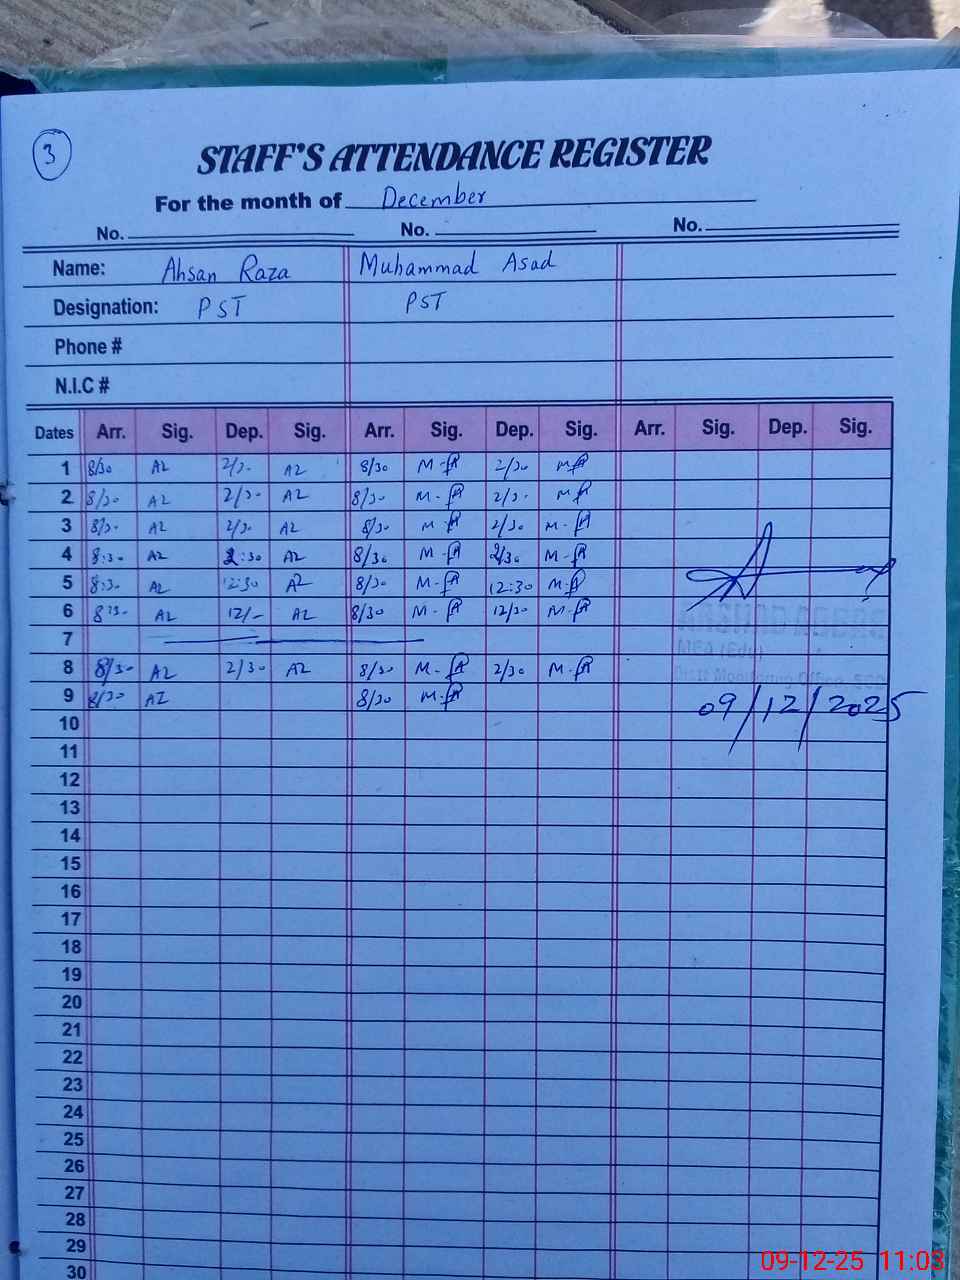 3
STAFF'S ATTENDANCE REGISTER
For the month of December
No. No. No.
Name: Ahsan Raza Muhammad Asad
Designation: PST PST
Phone #
N.I.C #
Dates Arr. Sig. Dep. Sig. Arr. Sig. Dep. Sig. Arr. Sig. Dep. Sig.
1 8/30 AZ 2/30 AZ 8/30 M-A 2/30 MA
2 8/30 AZ 2/30 AZ 8/30 M-A 2/30 MA
3 8/30 AZ 2/30 AZ 8/30 M-A 2/30 M-A
4 8:30 AZ 2:30 AZ 8/30 M-A 2/30 M-A
5 8:30 AZ 12:30 AZ 8/30 M-A 12:30 M-A
6 8:30 AZ 12/- AZ 8/30 M-A 12/30 M-A
7
8 8/30 AZ 2/30 AZ 8/30 M-A 2/30 M-A
9 8/30 AZ 8/30 M-A
09/12/2025
10
11
12
13
14
15
16
17
18
19
20
21
22
23
24
25
26
27
28
29
30
09-12-25 11:03